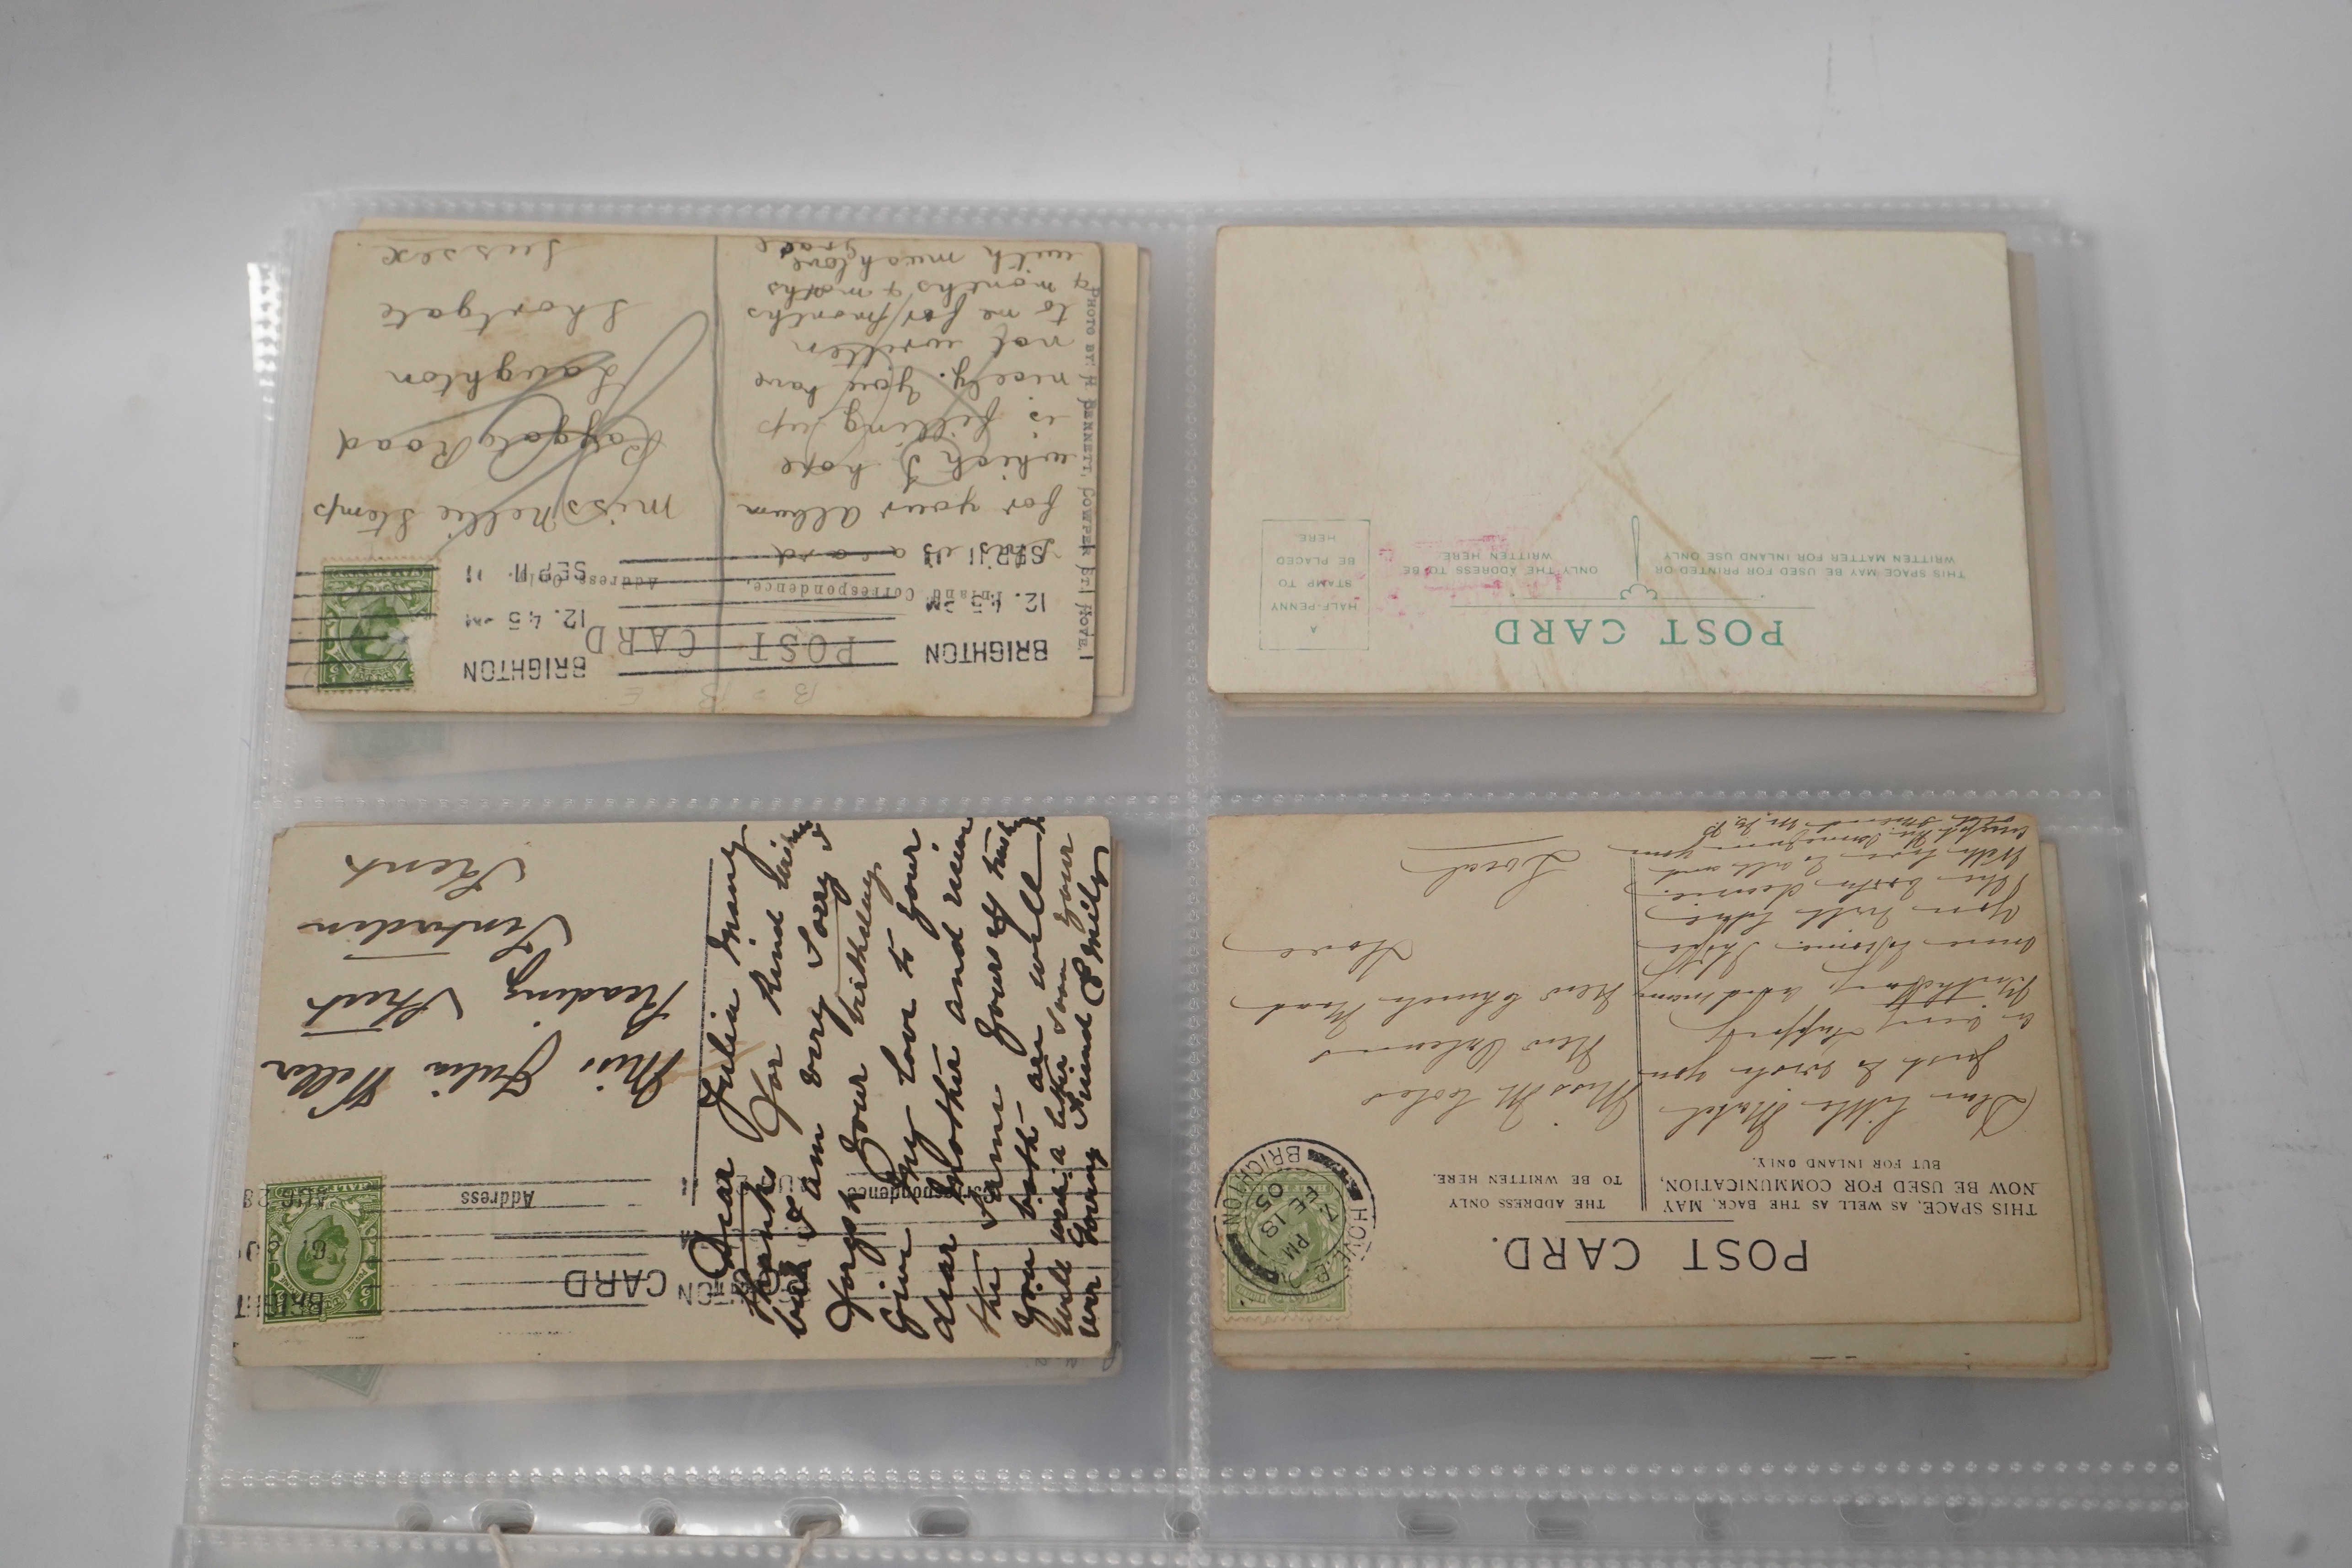 POST CARD
BRIGHTON
12.45 PM
SEP 11
BRIGHTON
12.45 PM
SEP 11
Inland Correspondence.
Address Only.
PHOTO BY: A. BENNETT, COWPER ST. HOVE.
a card
for your album
which I hope
is filling up
nicely. You have
not written
to me for months
& months & months
with much love
Grace
Miss Nellie Stemp
Road
Laughton
Shortgate
Sussex.
POST CARD
THIS SPACE MAY BE USED FOR PRINTED OR
WRITTEN MATTER FOR INLAND USE ONLY
ONLY THE ADDRESS TO BE
WRITTEN HERE.
A
HALF-PENNY
STAMP TO
BE PLACED
HERE.
CARD
Correspondence
Address
BRIGHT
AUG 28
Dear Julia Many
thanks for kind
but I am very sorry I
forgot your birthday.
Give my love to your
dear Mother and
the same yours
You both are well
well
ever loving friend Emily
Miss Julia Weller
Reading Street
Tenterden
Kent
POST CARD.
THIS SPACE, AS WELL AS THE BACK, MAY
NOW BE USED FOR COMMUNICATION,
BUT FOR INLAND ONLY.
THE ADDRESS ONLY
TO BE WRITTEN HERE.
HOVE B.O.
PM
FE 18
05
BRIGHTON
Dear little Mabel
Just to wish you
a very happy
Birthday, and many
more to come. I hope
you will like
With love to all and
Miss M Coles
New Orleans
New Church Road
Hove
Local